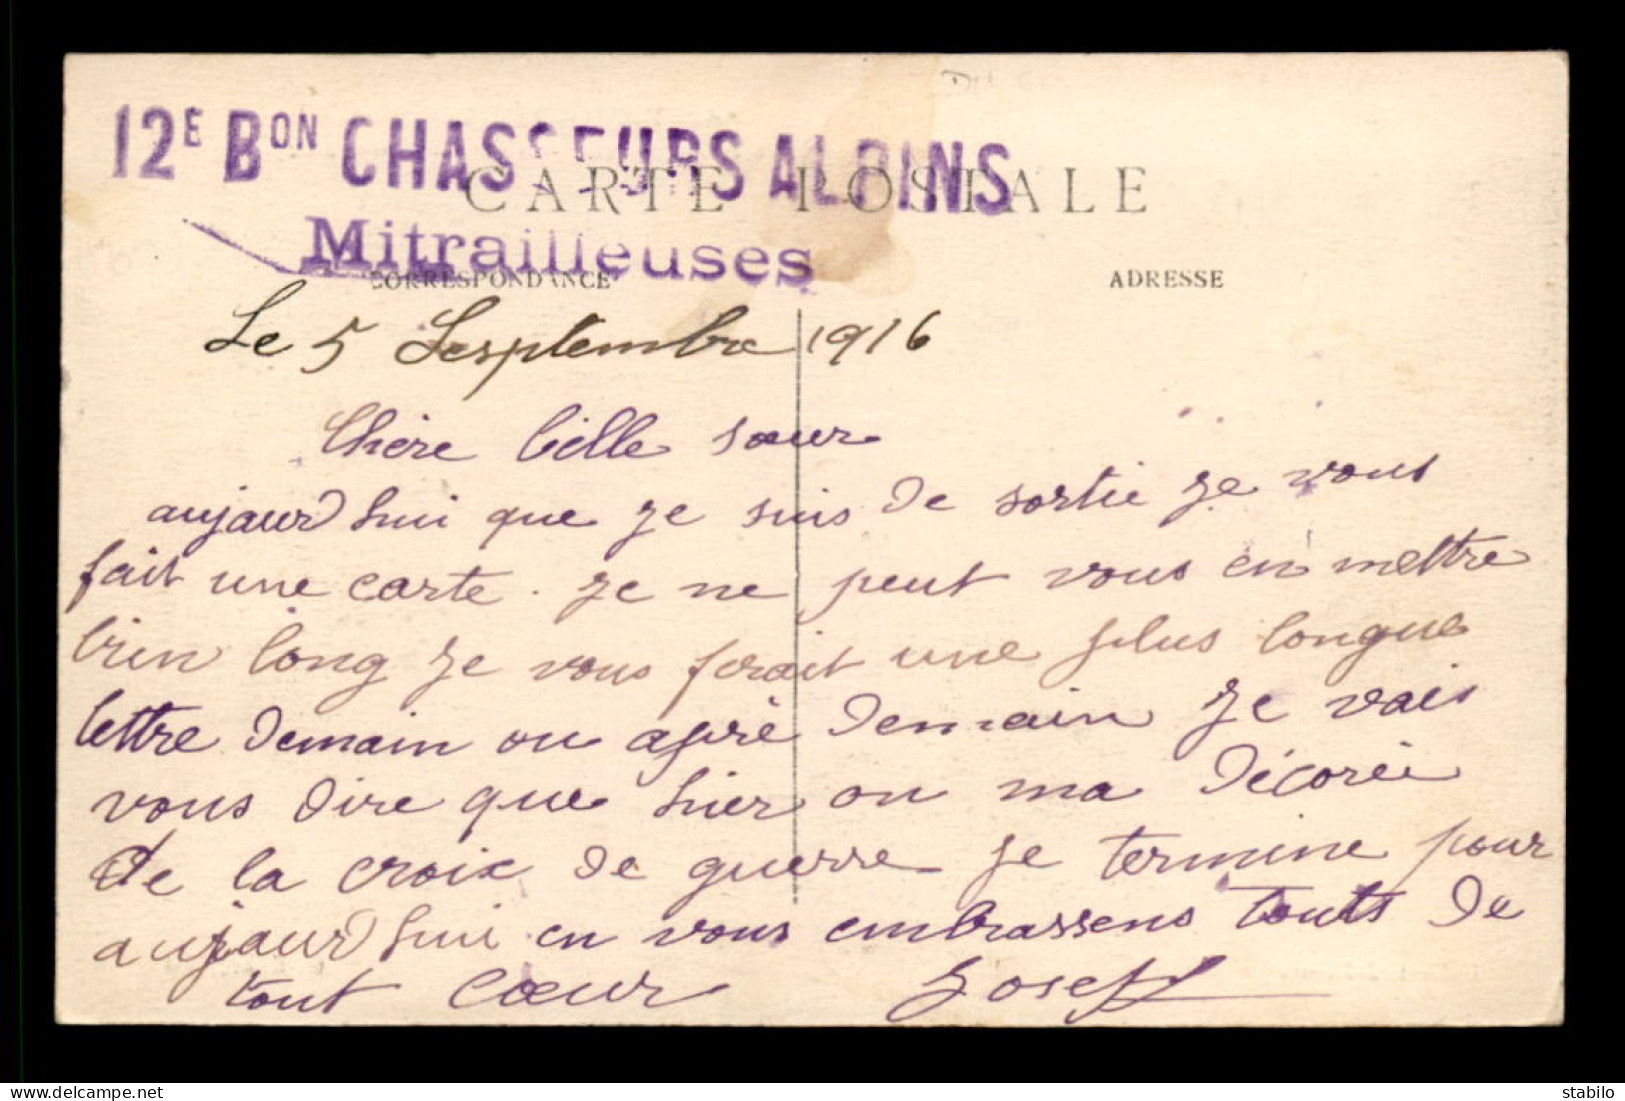 12E BON CHASSEURS ALPINS
CARTE POSTALE
Mitrailleuses
CORRESPONDANCE
ADRESSE
Le 5 Sesptembre 1916
Chère bélle sœur
aujourd hui que je suis de sortie je vous
fait une carte. je ne peut vous en mettre
bien long je vous ferait une plus longue
lettre demain ou aprè demain je vais
vous dire que hier on ma décorée
de la croix de guerre je termine pour
aujourd hui en vous embrassens touts de
tout cœur Josef
stabilo